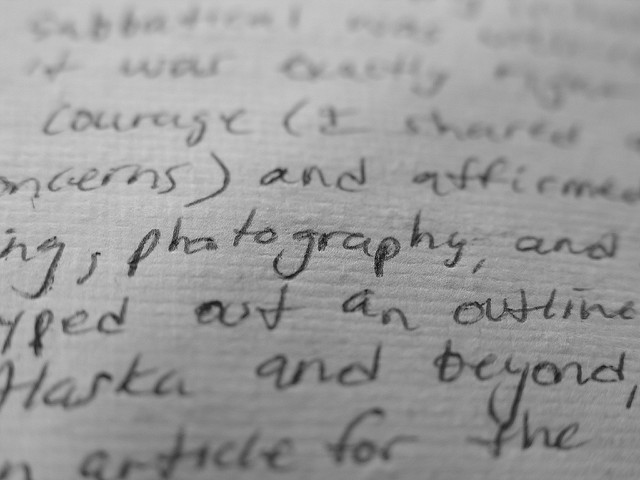 sabbatical
it was exactly
courage (I shared
oncerns) and affirmed
ing, photography, and
yped out an outline
Alaska and beyond,
n article for the